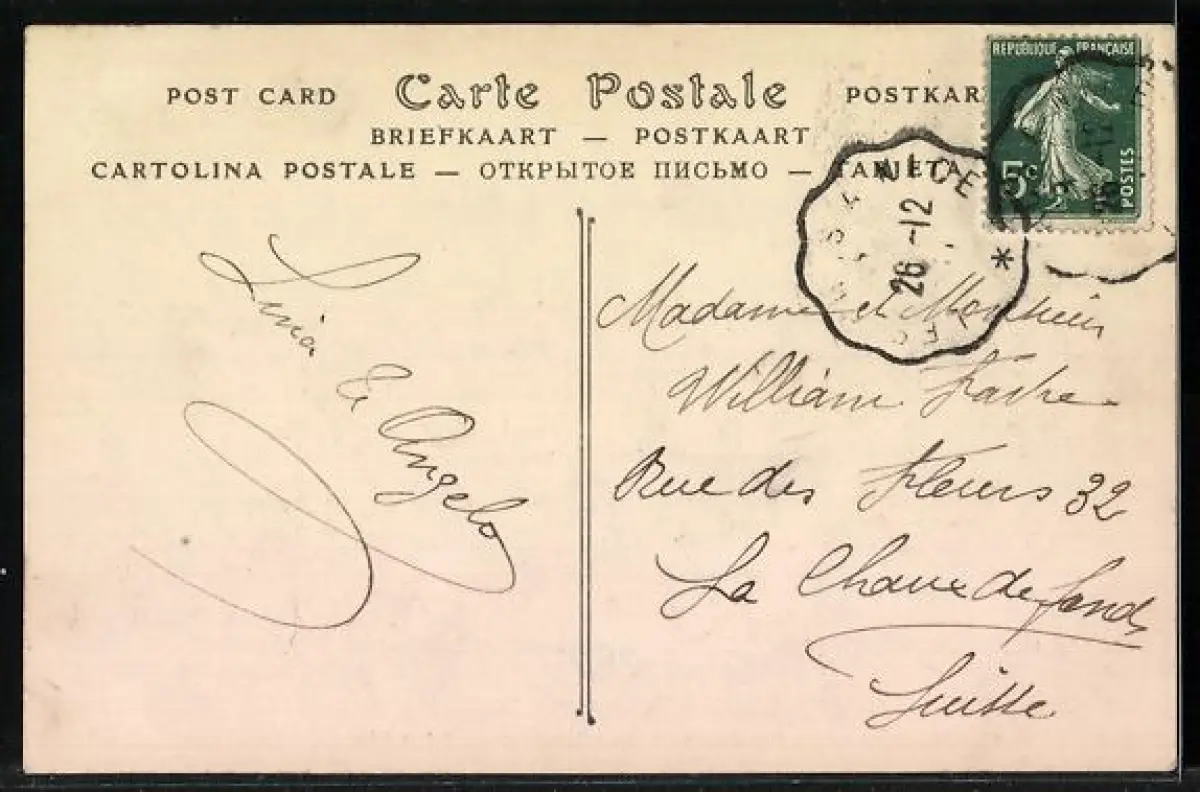 POST CARD Carte Postale POSTKAR
BRIEFKAART — POSTKAART
CARTOLINA POSTALE — ОТКРЫТОЕ ПИСЬМО — TARJETA
REPUBLIQUE FRANÇAISE
5c
POSTES
NICE
26 -12
*
& Angelo
Madame et Monsieur
William Favre
Rue des Fleurs 32
La Chaux de fonds
Suisse